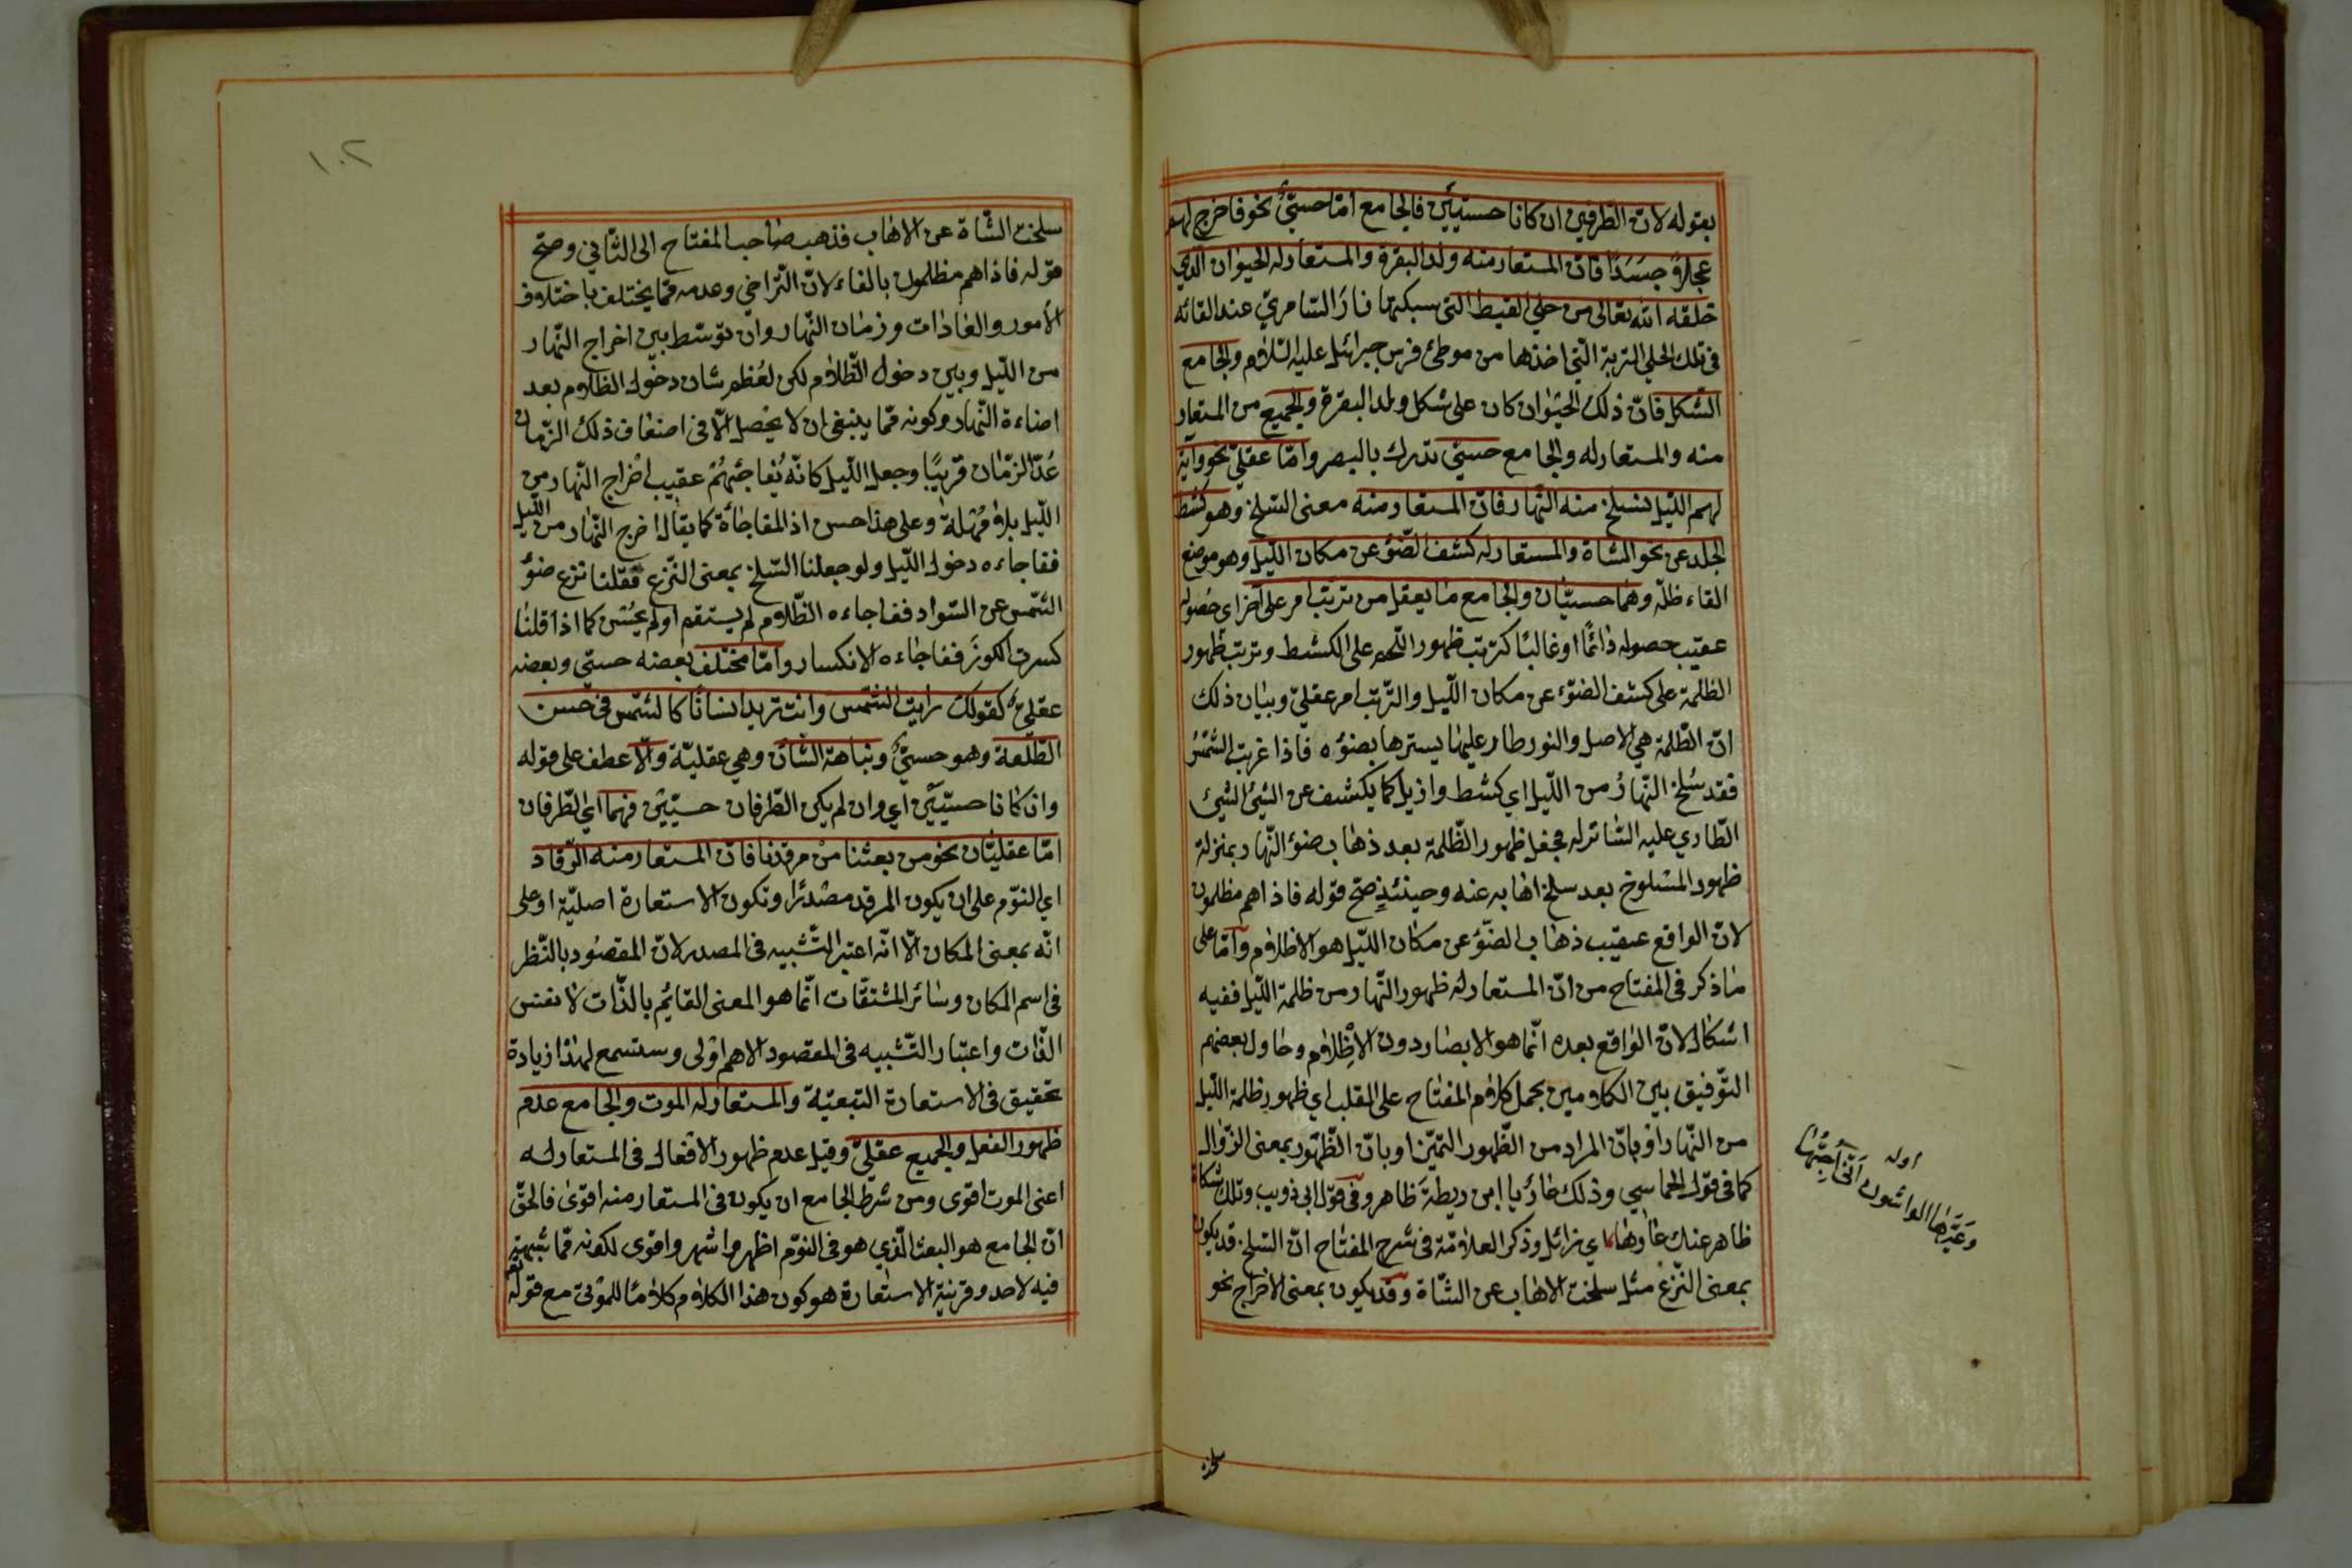 بقوله لانّ الطّرفين ان كانا حسيّين فالجامع امّا حسيّ نحو فاخرج لهم
عجلاً جسَدًا فانّ المستعار منه ولد البقرة والمستعار له الحيوان الّذي
خلقه الله تعالى من حلي القبط التي سبكتها نار السّامريّ عند القائه
في تلك الحلي التربة الّتي اخذها من موطئ فرس جبرائيل عليه السّلام والجامع
الشّكل فانّ ذلك الحيوان كان على شكل ولد البقرة والجميع من المستعار
منه والمستعار له والجامع حسّيّ تدرك بالبصر وامّا عقليّ نحو وآية
لهم اللّيل نسلخ منه النّهار فانّ المستعار منه معنى السّلخ وهو كشط
الجلد عن نحو الشاة والمستعار له كشف الضّوء عن مكان اللّيل وهو موضع
القاء ظلّه وهما حسيّان والجامع ما يعقل من ترتّب امر على آخر اي حصوله
عقيب حصوله دائمًا او غالبًا كترتب ظهور اللّحم على الكشط وترتب ظهور
الظلمة على كشف الضوء عن مكان اللّيل والترتّب امر عقليّ وبيان ذلك
انّ الظّلمة هي الاصل والنور طار عليها يسترها بضوئه فاذا غربت الشّمسُ
فقد سُلخ النّهارُ من اللّيل اي كشط وازيل كما يكشف عن الشيئ الشيئ
الطّاري عليه السّاتر له فجعل ظهور الظّلمة بعد ذهاب ضوء النّهار بمنزلة
ظهور المسلوخ بعد سلخ اهابه عنه وحينئذٍ صحّ قوله فاذا هم مظلمون
لانّ الواقع عقيب ذهاب الضّوء عن مكان اللّيل هو الاظلام وامّا على
ما ذكر في المفتاح من انّ المستعار له ظهور النّهار من ظلمة اللّيل ففيه
اشكال لانّ الواقع بعده انّما هو الابصار دون الاظلام وحاول بعضهم
التّوفيق بين الكلامين بحمل كلام المفتاح على القلب اي ظهور ظلمة اللّيل
من النّهار او بانّ المراد من الظّهور التميّز او بانّ الظّهور بمعنى الزّوال
كما في قول الحماسي وذلك عارٌ يا ابن ريطة ظاهر وفي قول ابي ذويب وتلك شكاة
ظاهر عنك عارها اي زائل وذكر العلامّة في شرح المفتاح انّ السّلخ قد يكون
بمعنى النّزع مثل سلخت الاهاب عن الشّاة وقد يكون بمعنى الاخراج نحو
اوله
وعيّرها الواشون انّي احبّها
سلخت
١٠٢
سلخت الشّاة عن الاهاب فذهب صاحب المفتاح الى الثّاني وصحّ
قوله فاذا هم مظلمون بالفاء لانّ التّراخي وعدمه ممّا يختلف باختلاف
الأمور والعادات وزمان النّهار وان توسّط بين اخراج النّهار
من اللّيل وبين دخول الظّلام لكن لعظم شان دخول الظلام بعد
اضاءة النّهار وكونه ممّا ينبغي ان لا يحصل الّا في اضعاف ذلك الزّمان
عُدّ الزمّان قريبًا وجعل اللّيل كانّه يُفاجئهُمْ عقيب اخراج النّهار من
اللّيل بلا مُهلة وعلى هذا حسن اذا المفاجأة كما يقال اخرج النّهار من اللّيل
ففاجاءه دخول اللّيل ولو جعلنا السّلخ بمعنى النّزع فقلنا نزع ضوء
الشّمس عن الهواء ففاجاءه الظّلام لم يستقم او لم يحسن كما اذا قلنا
كسرت الكوزَ ففاجاءه الانكسار وامّا مختلف بعضه حسّي وبعضه
عقليّ كقولك رايت الشّمس وانت تريد انسانًا كالشّمس في حسن
الطّلعة وهو حسيّ ونباهة الشّان وهي عقليّة والّا عطف على قوله
وان كانا حسيّين اي وان لم يكن الطّرفان حسيّين فهما اي الطّرفان
امّا عقليّان نحو من بعثنا من مرقدنا فانّ المستعار منه الرّقاد
اي النّوم على ان يكون المرقد مصدرًا وتكون الاستعارة اصليّة او على
انّه بمعنى المكان الّا انّه اعتبر التّشبيه في المصدر لانّ المقصُود بالنّظر
في اسم المكان وسائر المشتقّات انّما هو المعنى القائم بالذّات لا نفس
الذّات واعتبار التّشبيه في المقصود الاهم اولى وستسمع لهذا زيادة
تحقيق في الاستعارة التبعيّة والمستعار له الموت والجامع عدم
ظهور الفعل والجميع عقليّ وقيل عدم ظهور الافعال في المستعار له
اعنى الموت اقوى ومن شرط الجامع ان يكون في المستعار منه اقوى فالحقّ
انّ الجامع هو البعث الّذي هو في النّوم اظهر واشهر واقوى لكونه ممّا لا شبهة
فيه لاحد وقرينة الاستعارة هو كون هذا الكلام كلامًا للموتى مع قوله